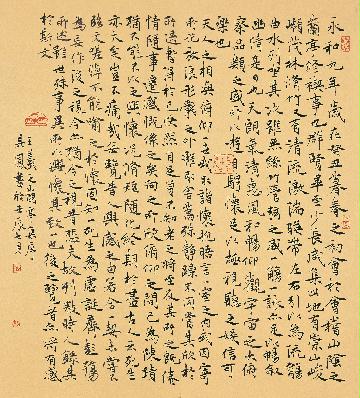 永和九年歲在癸丑暮春之初會于會稽山陰之
蘭亭修禊事也群賢畢至少長咸集此地有崇山峻
嶺茂林修竹又有清流激湍映帶左右引以為流觴
曲水列坐其次雖無絲竹管弦之盛一觴一詠亦足以暢敘
幽情是日也天朗氣清惠風和暢仰觀宇宙之大俯
察品類之盛所以遊目騁懷足以極視聽之娛信可
樂也
夫人之相與俯仰一世或取諸懷抱晤言一室之內或因寄
所託放浪形骸之外雖趣舍萬殊靜躁不同當其欣於
所遇暫得於己快然自足曾不知老之將至及其所之既倦
情隨事遷感慨係之矣向之所欣俛仰之間已為陳迹
猶不能不以之興懷況脩短隨化終期於盡古人云死生
亦大矣豈不痛哉每覽昔人興感之由若合一契未嘗不
臨文嗟悼不能喻之於懷固知一死生為虛誕齊彭殤
為妄作後之視今亦猶今之視昔悲夫故列敘時人錄其
所述雖世殊事異所以興懷其致一也後之覽者亦將有感
於斯文